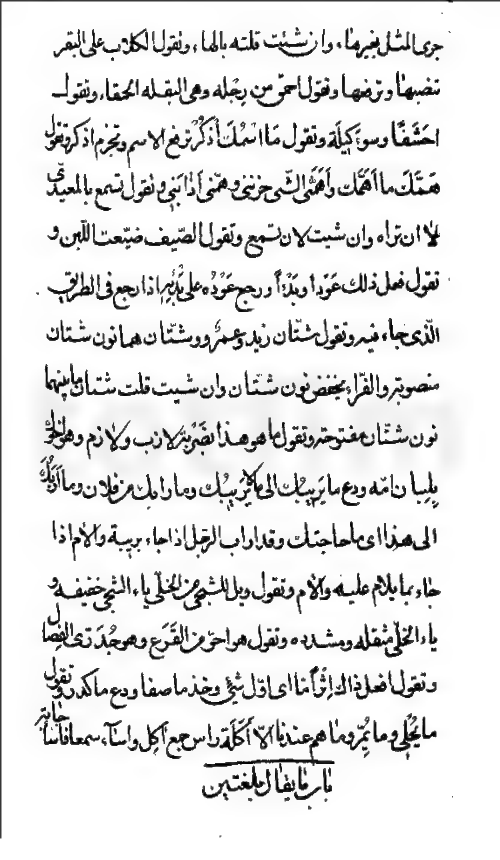 جرى المثل بغيرها، وان شئت قلته بالها، وتقول الكلاب على البقر
تنصبها وترفعها وتقول احمق من رجله وهى البقله الحمقاء وتقول
احشفًا وسوء كيلة وتقول ما اسْمُكَ أذكُرْ ترفع الاسم وتجزم اذكر وتقول
هَمّكَ ما اَهَمَّك وأهمّنى الشّى حزننى وهمّنى أذابنى وتقول تسمع بالمعيدىّ
لا ان تراه وان شيت لان تسمع وتقول الصّيف ضيّعت اللّبن و
تقول فعل ذلك عَودا وبَدْءاً ورجع عَوْدُه على بَدْئِهِ اذا رجع فى الطريق
الّذى جاء فيه وتقول شتّان زيد وعمرٌو وشتّان هما نون شتان
منصوبة والفرّاء يخفض نون شتّان وان شيت قلت شتان ما بينهما
نون شتّان مفتوحة وتقول ما هو هذا بضَربة لازب ولازم وهو اخوك
بلِبان امّه ودع ما يَريبُك الى ما لا يَريبُك وما رابك من فلان وما أرَبُكَ
الى هذا اى ما حاجتك وقد اراب الرّجل اذا جاء بريبة والام اذا
جاء بما يلام عليه والام وتقول ويل للشجى من الخلّى ياء الشجى خفيفه و
ياء الخلّى مثقله ومشدده وتقول هو احرّ من القَرَع وهو جُدَرىّ الفِصال
وتقول افعل ذاك آثِراً مّا اى اوّل شئ وخذ ما صفا ودع ما كدر وتقول
ما يُحْلِى وما يُمِرّ وما هم عندنا الّا أكَلَة راس جمع آكِل واساء سمعا فاساء جابة
باب ما يقال بلغتين